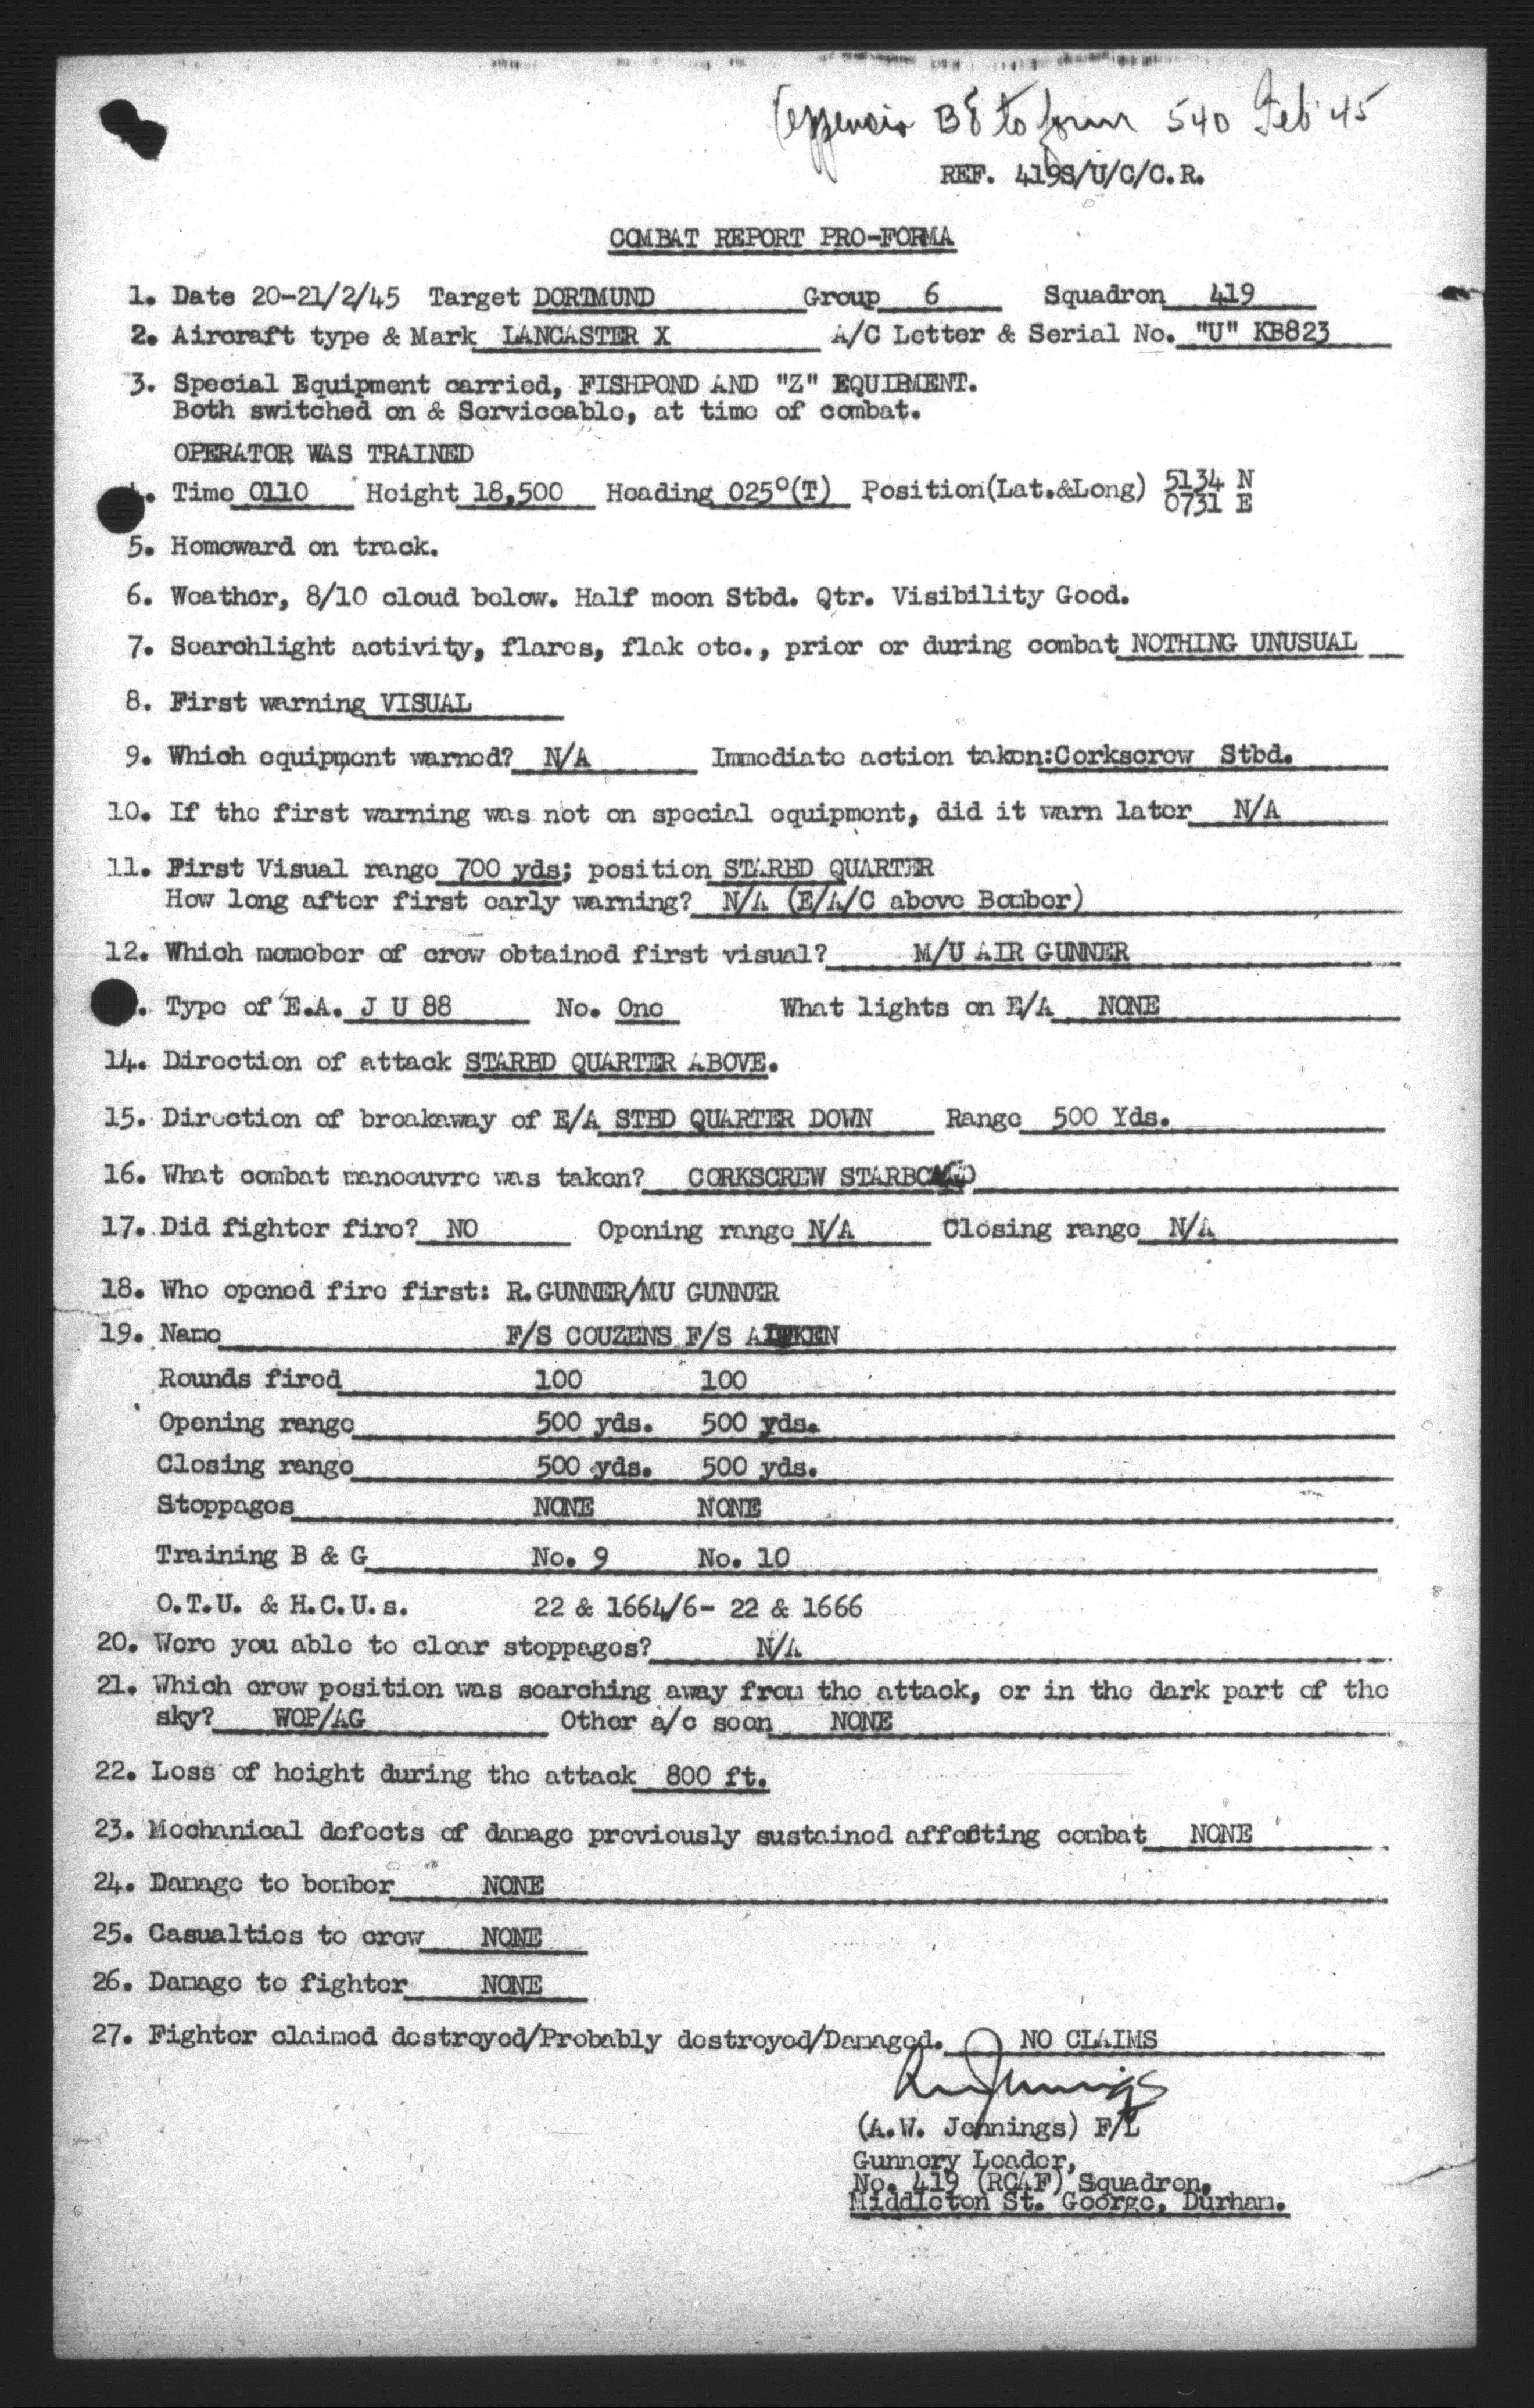 Appendix B8 to form 540 Feb '45
REF. 419S/U/C/C.R.
COMBAT REPORT PRO-FORMA
1. Date 20-21/2/45 Target DORTMUND Group 6 Squadron 419
2. Aircraft type & Mark LANCASTER X A/C Letter & Serial No. "U" KB823
3. Special Equipment carried, FISHPOND AND "Z" EQUIPMENT.
Both switched on & Serviceable, at time of combat.
OPERATOR WAS TRAINED
. Time 0110 Height 18,500 Heading 025°(T) Position(Lat.&Long) 5134 N
0731 E
5. Homeward on track.
6. Weather, 8/10 cloud below. Half moon Stbd. Qtr. Visibility Good.
7. Searchlight activity, flares, flak etc., prior or during combat NOTHING UNUSUAL
8. First warning VISUAL
9. Which equipment warned? N/A Immediate action taken:Corkscrew Stbd.
10. If the first warning was not on special equipment, did it warn later N/A
11. First Visual range 700 yds; position STARBD QUARTER
How long after first early warning? N/A (E/A/C above Bomber)
12. Which momeber of crew obtained first visual? M/U AIR GUNNER
. Type of E.A. J U 88 No. One What lights on E/A NONE
14. Direction of attack STARBD QUARTER ABOVE.
15. Direction of breakaway of E/A STBD QUARTER DOWN Range 500 Yds.
16. What combat manoeuvre was taken? CORKSCREW STARBOARD
17. Did fighter fire? NO Opening range N/A Closing range N/A
18. Who opened fire first: R.GUNNER/MU GUNNER
19. Name F/S COUZENS F/S AITKEN
Rounds fired 100 100
Opening range 500 yds. 500 yds.
Closing range 500 yds. 500 yds.
Stoppages NONE NONE
Training B & G No. 9 No. 10
O.T.U. & H.C.U.s. 22 & 1664/6- 22 & 1666
20. Were you able to clear stoppages? N/A
21. Which crew position was searching away from the attack, or in the dark part of the
sky? WOP/AG Other a/c seen NONE
22. Loss of height during the attack 800 ft.
23. Mechanical defects of damage previously sustained affecting combat NONE
24. Damage to bomber NONE
25. Casualties to crew NONE
26. Damage to fighter NONE
27. Fighter claimed destroyed/Probably destroyed/Damaged. NO CLAIMS
(A.W. Jennings) F/L
Gunnery Leader,
No. 419 (RCAF) Squadron,
Middleton St. George, Durham.